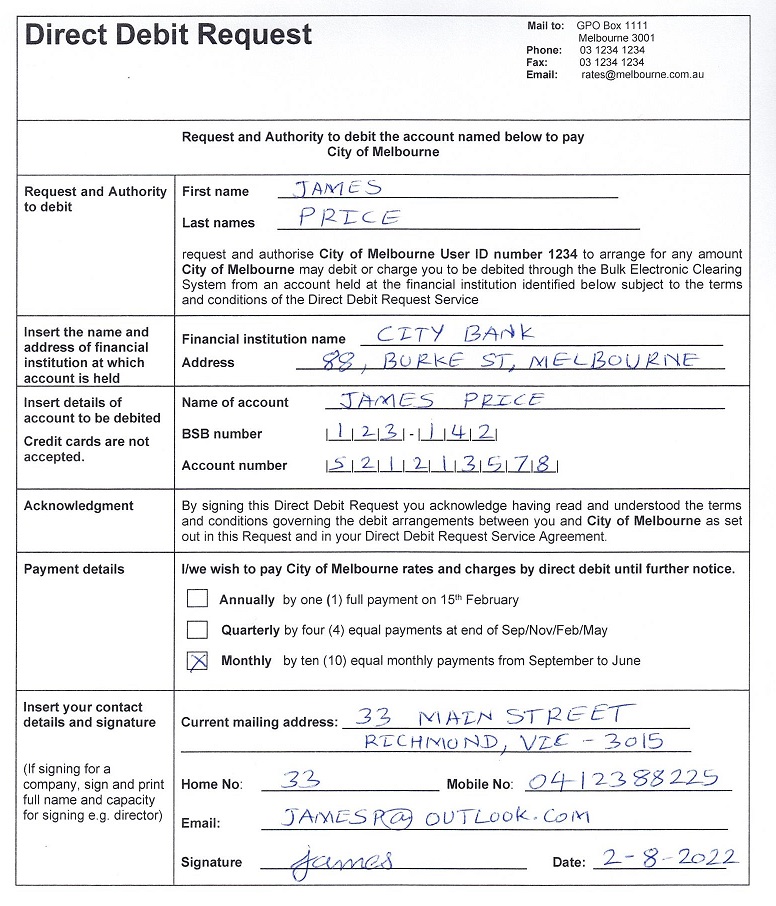 Direct Debit Request
Mail to: GPO Box 1111
Melbourne 3001
Phone: 03 1234 1234
Fax: 03 1234 1234
Email: rates@melbourne.com.au
Request and Authority to debit the account named below to pay
City of Melbourne
Request and Authority
to debit
First name JAMES
Last names PRICE
request and authorise City of Melbourne User ID number 1234 to arrange for any amount
City of Melbourne may debit or charge you to be debited through the Bulk Electronic Clearing
System from an account held at the financial institution identified below subject to the terms
and conditions of the Direct Debit Request Service
Insert the name and
address of financial
institution at which
account is held
Financial institution name CITY BANK
Address 88, BURKE ST, MELBOURNE
Insert details of
account to be debited
Credit cards are not
accepted.
Name of account JAMES PRICE
BSB number 123-142
Account number 521213578
Acknowledgment
By signing this Direct Debit Request you acknowledge having read and understood the terms
and conditions governing the debit arrangements between you and City of Melbourne as set
out in this Request and in your Direct Debit Request Service Agreement.
Payment details
I/we wish to pay City of Melbourne rates and charges by direct debit until further notice.
Annually by one (1) full payment on 15th February
Quarterly by four (4) equal payments at end of Sep/Nov/Feb/May
Monthly by ten (10) equal monthly payments from September to June
Insert your contact
details and signature
(If signing for a
company, sign and print
full name and capacity
for signing e.g. director)
Current mailing address: 33 MAIN STREET
RICHMOND, VIE - 3015
Home No: 33 Mobile No: 0412388225
Email: JAMESP@OUTLOOK.COM
Signature james Date: 2-8-2022